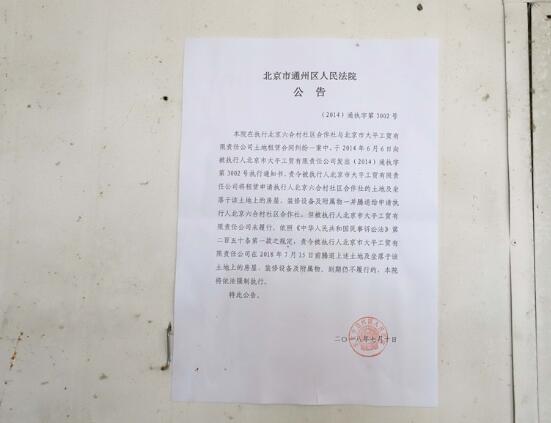 北京市通州区人民法院
公 告
(2014)通执字第3002号
本院在执行北京六合村社区合作社与北京市大平工贸有
限责任公司土地租赁合同纠纷一案中,于2014年6月6日向
被执行人北京市大平工贸有限责任公司发出(2014)通执字
第3002号执行通知书,责令被执行人北京市大平工贸有限责
任公司将租赁申请执行人北京六合村社区合作社的土地及坐
落于该土地上的房屋、装修设备及附属物一并腾退给申请执
行人北京六合村社区合作社。但被执行人北京市大平工贸有
限责任公司未履行。依照《中华人民共和国民事诉讼法》第
二百五十条第一款之规定,责令被执行人北京市大平工贸有
限责任公司在2018年7月15日前腾退上述土地及坐落于该
土地上的房屋、装修设备及附属物。到期仍不履行的,本院
将依法强制执行。
特此公告。
二〇一八年七月十日